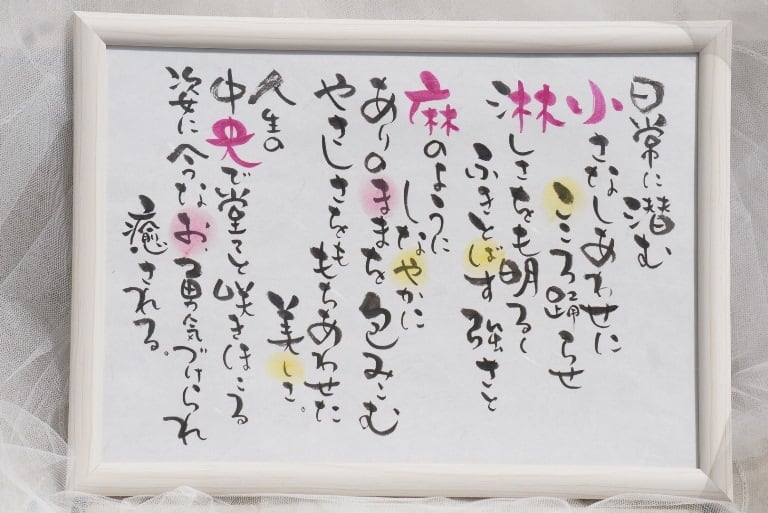 日常に潜む
小さなしあわせに
こころ踊らせ
淋しさをも明るく
ふきとばす強さと
麻のように
しなやかに
ありのままを包みこむ
やさしさをももちあわせた
美しさ。
人生の
中央で堂々と咲きほこる
姿に今もなお、勇気づけられ
癒される。